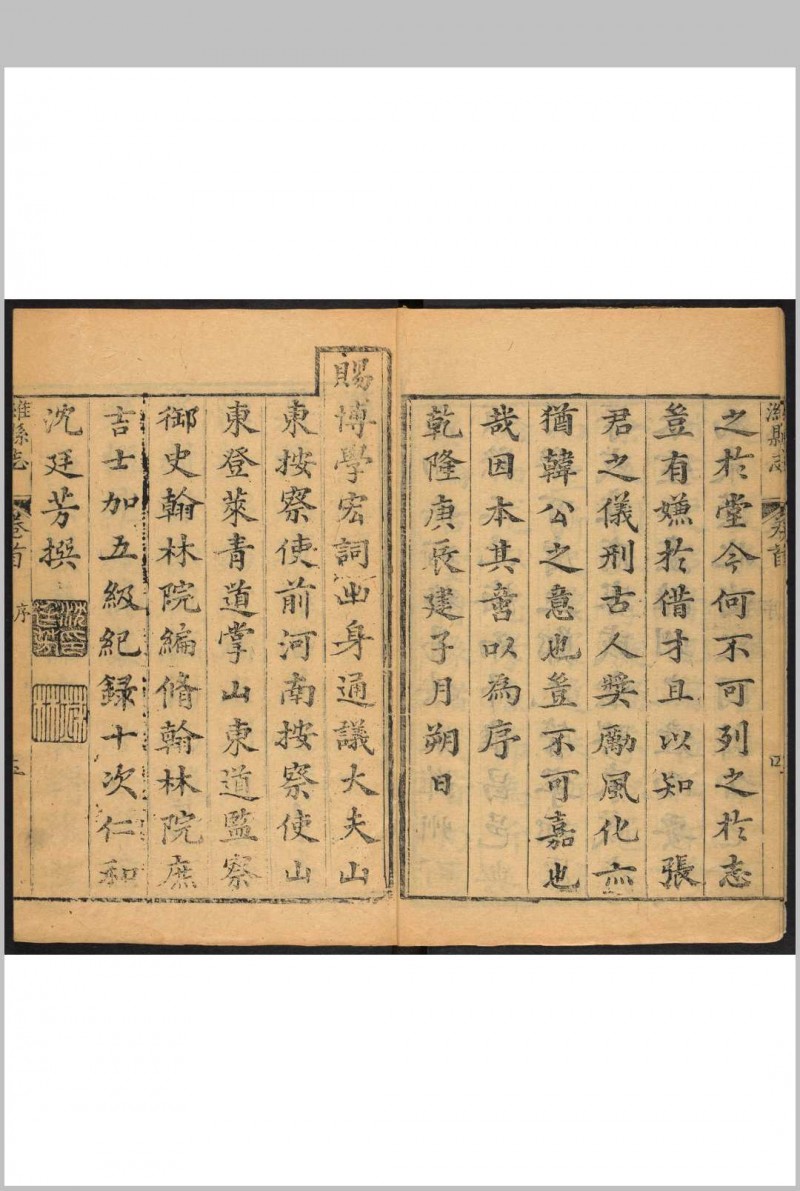 濰縣志
卷首
四
之於堂今何不可列之於志
豈有嫌於借才且以知張
君之儀刑古人奬勵風化亦
猶韓公之意也豈不可嘉也
哉因本其意以為序
乾隆庚辰建子月朔日
賜博學宏詞出身通議大夫山
東按察使前河南按察使山
東登萊青道掌山東道監察
御史翰林院編脩翰林院庶
吉士加五級紀録十次仁和
沈廷芳撰
濰縣志
卷首
序